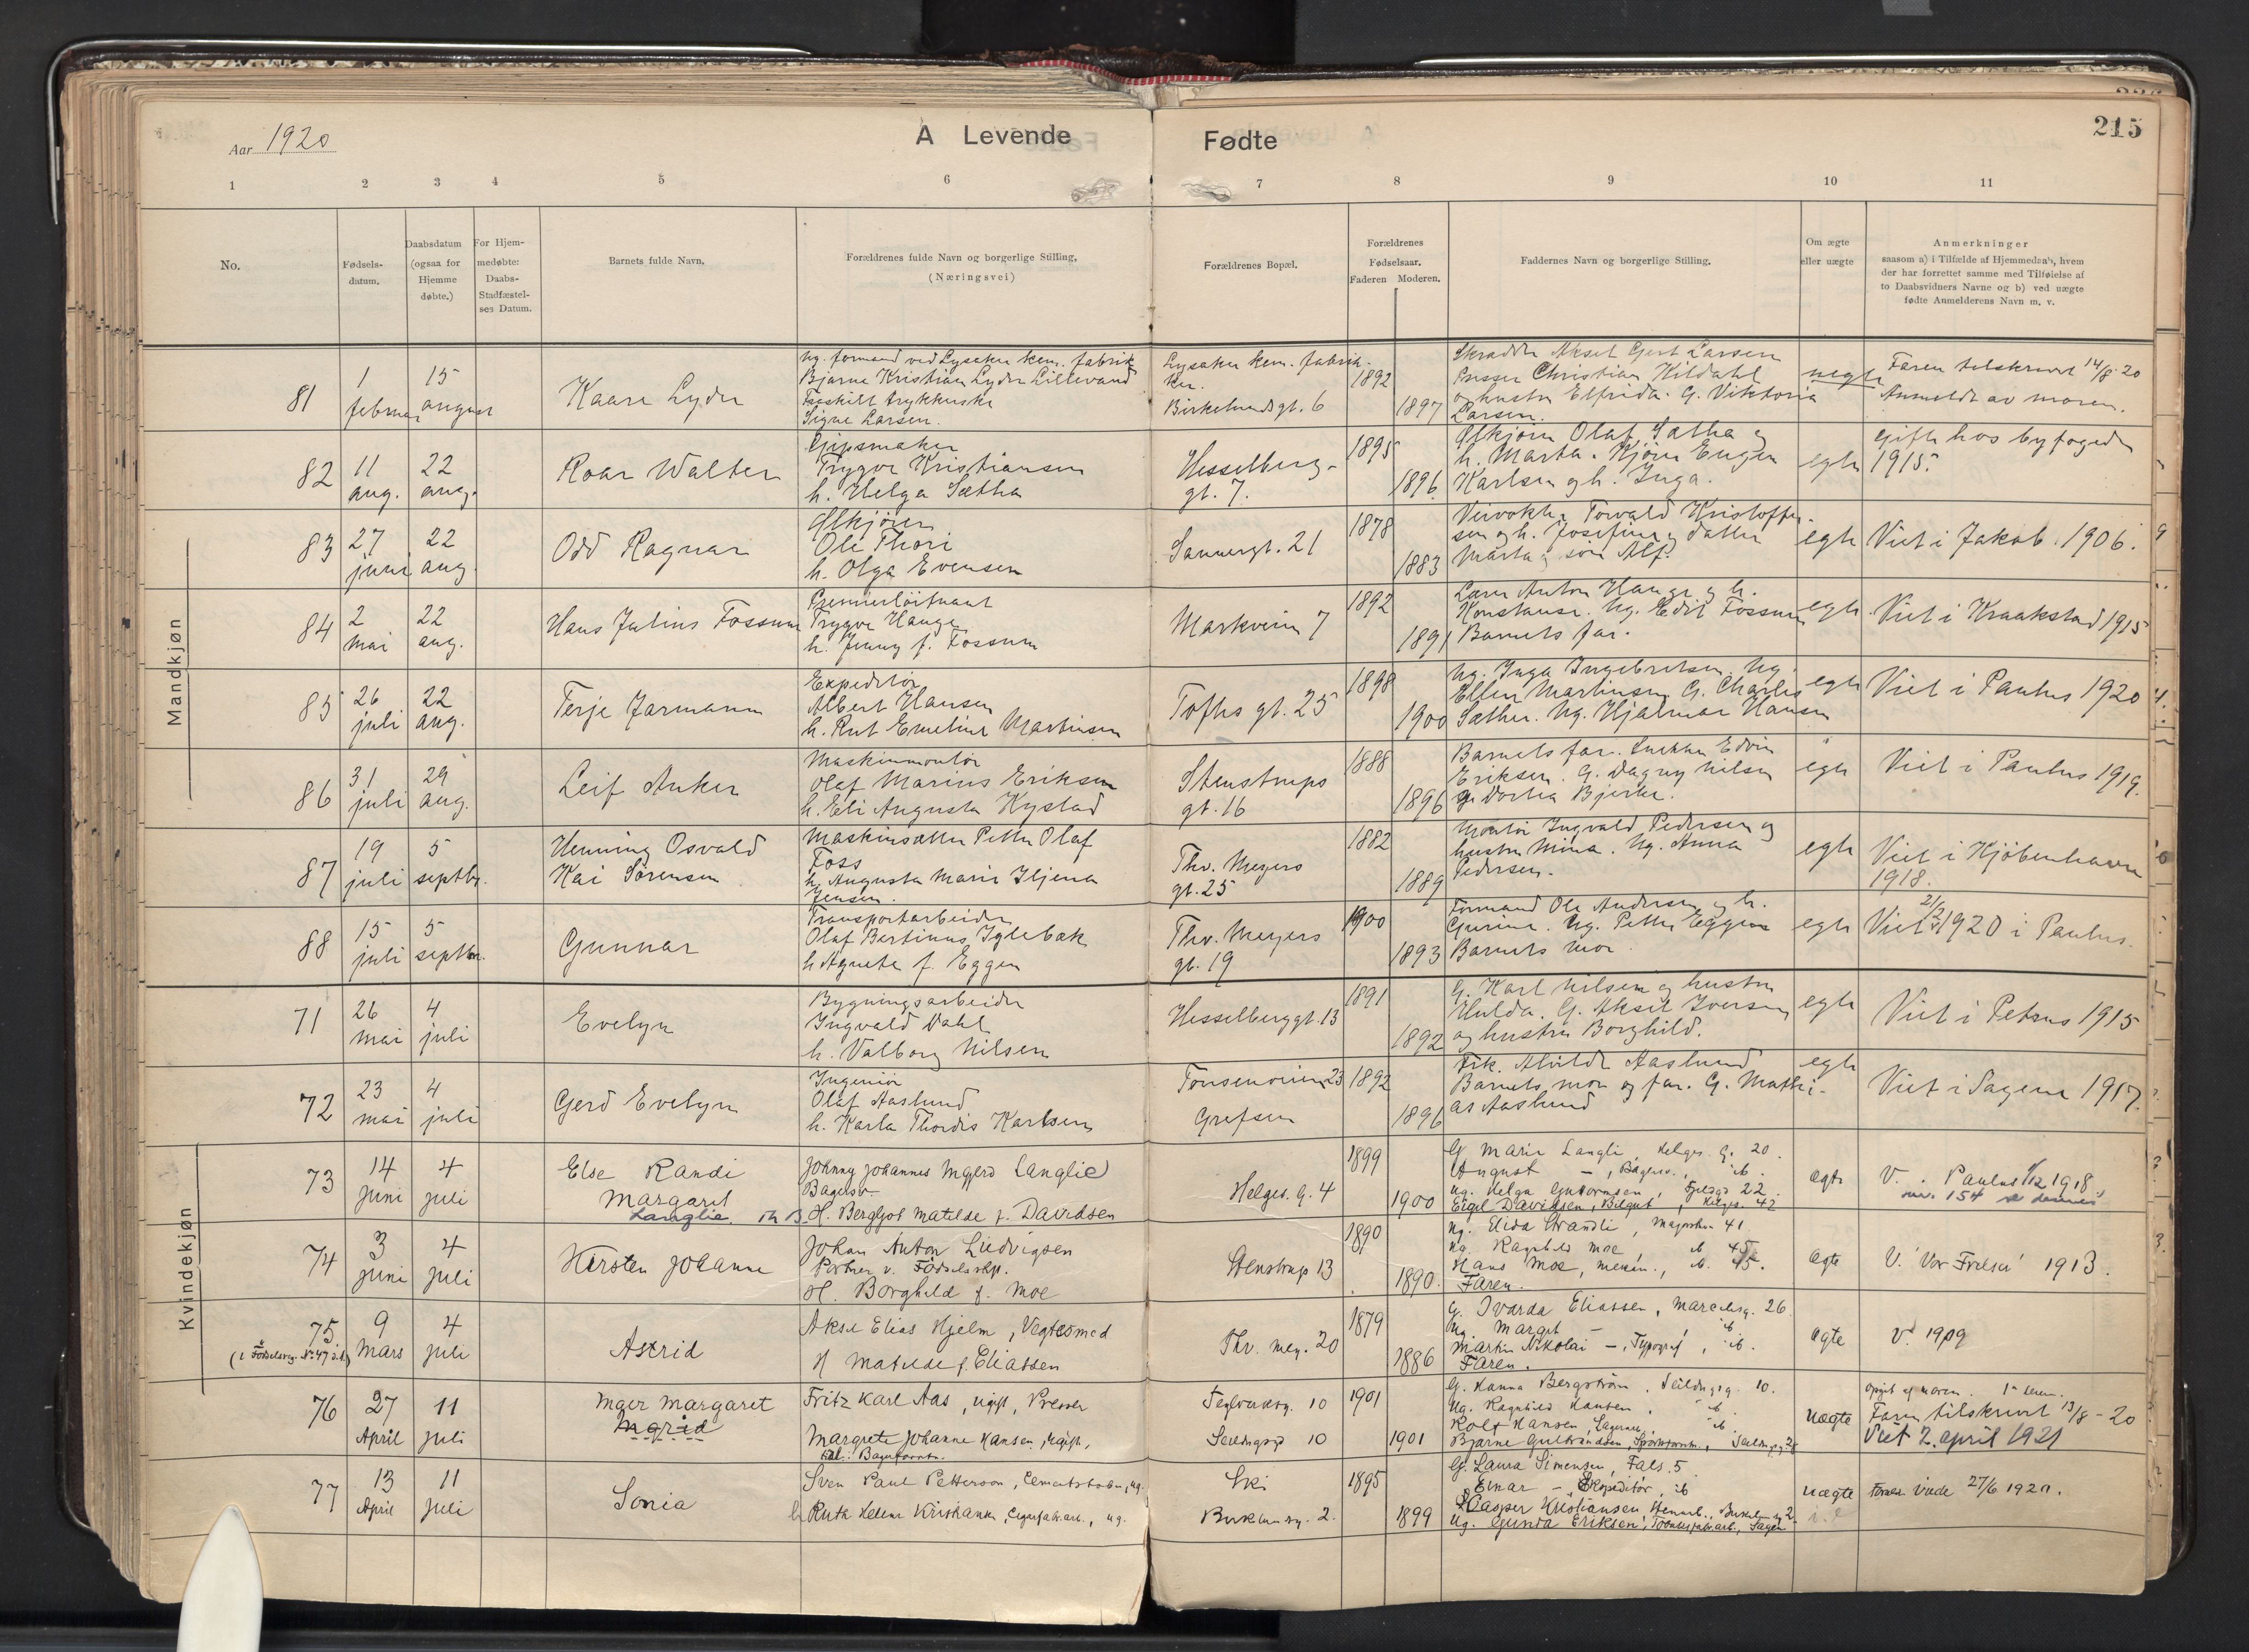 215
Aar 1920
A Levende
Fødte
1 2 3 4 5 6 7 8 9 10 11
No.
Fødsels-
datum.
Daabsdatum
(ogsaa for
Hjemme
døbte.)
For Hjem-
medøbte:
Daabs-
Stadfæstel-
ses Datum.
Barnets fulde Navn.
Forældrenes fulde Navn og borgerlige Stilling.
(Næringsvei)
Forældrenes Bopæl.
Forældrenes
Fødselsaar.
Faderen Moderen.
Faddernes Navn og borgerlige Stilling.
Om ægte
eller uægte
Anmerkninger
saasom a) i Tilfælde af Hjemmedaab, hvem
der har forrettet samme med Tilføielse af
to Daabsvidners Navne og b) ved uægte
fødte Anmelderens Navn m. v.
Mandkjøn
81
1
februar
15
august
Kaare Lyder
Ug. formand ved Lysaker kem. fabrik
Bjarne Kristian Lyder Lillevand
Fraskilt trykkerske
Signe Larsen.
Lysaker kem. fabrik-
ker.
Birkelundsgt. 6
1892
1897
Skrædder Aksel Gert Larsen
Presser Christian Kildahl
og hustru Elfrida. G. Viktoria
Larsen.
uegte
Faren tilskrevet 14/8-20
Anmeldt av moren.
82
11
aug.
22
aug.
Roar Walter
Gipsmaker
Trygve Kristiansen
h. Helga Sætha
Hesselberg-
gt. 7.
1895
1896
Ølkjører Olaf Sætha og
h. Marta. Kjører Eugen
Karlsen og h. Inga.
egte
Gifte hos byfogden
1915.
83
27
juni
22
aug.
Odd Ragnar
Ølkjører
Ole Thori
h. Olga Evensen
Sannergt. 21
1878
1883
Torvald Kristoffer-
sen og h. Josefine og datter
Marta og søn Alf.
egte
Viet i Jakob 1906.
84
2
mai
22
aug.
Hans Julius Fossum
Premierløitnant
Trygve Hauge
h. Jenny f. Fossum
Markveien 7
1892
1891
Lærer Anton Hauge og h.
Konstanse. Ug. Edit Fossum
Barnets far.
egte
Viet i Kraakstad 1915
85
26
juli
22
aug.
Terje Jarmann
Expeditør
Albert Hansen
h. Rut Emeline Martinsen
Toftes gt. 25
1898
1900
Ug. Inga Ingebretsen. Ug.
Ellen Martinsen. G. Charles
Sæther. Ug. Hjalmar Hansen
egte
Viet i Paulus 1920
86
31
juli
29
aug.
Leif Anker
Maskinmontør
Olaf Marius Eriksen
h. Eli Augusta Kystad
Stenstrups
gt. 16
1888
1896
Barnets far. Snekker Edvin
Eriksen. G. Dagny Nilsen
G. Dortea Bjerke.
egte
Viet i Paulus 1919.
87
19
juli
5
septbr.
Henning Osvald
Kai Sørensen
Maskinsætter Petter Olaf
Foss
h. Augusta Marie Iljena
Jensen.
Thv. Meyers
gt. 25
1882
1889
Montør Ingvald Pedersen og
hustru Mina. Ug. Anna
Pedersen.
egte
Viet i Kjöbenhavn
1918.
88
15
juli
5
septbr.
Gunnar
Transportarbeider
Olaf Bertinus Iglebæk
h. Agnete f. Eggen
Thv. Meyers
gt. 19
1900
1893
Formand Ole Andersen og h.
Gurine. Ug. Petter Eggen
Barnets mor
egte
Viet 21/2 1920 i Paulus.
Kvindekjøn
71
26
mai
4
juli
Evelyn
Bygningsarbeider
Ingvald Dahl
h. Valborg Nilsen
Hesselberggt. 13
1891
1892
G. Karl Nilsen og hustru
Hulda. G. Aksel Iversen
og hustru Borghild.
egte
Viet i Petrus 1915
72
23
mai
4
juli
Gerd Evelyn
Ingeniør
Olaf Aaslund
h. Karla Thordis Karlsen
Tonsenveien 23
Grefsen
1892
1896
Frk. Alvilde Aaslund
Barnets mor og far. G. Mathi-
as Aaslund
egte
Viet i Sagene 1917.
73
14
juni
4
juli
Else Randi
Margaret
Langlie
Johnny Johannes Mgjerd Langlie
Bagersv.
H. Bergljot Matilde f. Davidsen
Helges. G. 4
1899
1900
G. Marie Langli, Helges. G. 20.
August — , Bagersv., ib.
Ug. Helga Guttormsen, 22.
Eigil Davidsen, Helges. 42
ægte
V. . Paulus 1/12 1918
nr. 154
74
3
juni
4
juli
Kirsten Johanne
Johan Anton Ludvigsen
Portner v. Fødselsstift.
H. Borghild f. Moe
Stenstrup 13
1890
1890.
Ug. Elida Strandli, 41
Ug. Ragnhild Moe, ib. 45.
Hans Moe, ib. 45.
Faren.
ægte
V. Vor Frelser 1913.
75
(i Fødselsreg. No 47 d. å.)
9
Mars
4
juli
Astrid
Aksel Elias Hjelm, Vegtesmed
H Matilde f. Eliassen
Thv. Mey. 20
1879
1886
G. Ovarda Eliassen, Marcelisg. 26.
Ug. Margit — , ib
Martin Nikolai — , Typograf, ib.
Faren.
ægte
V. 1909
76
27
April
11
juli
Inger Margaret
Ingrid
Fritz Karl Aas, ugift, Presser
Margrete Johanne Hansen, ugift,
Teglverksg. 10
Seildugsg. 10
1901
1901
G. Hanna Bergstrøm, Seildugsg. 10.
Ug. Ragnhild Hansen, ib
Rolf Hansen, ib
Bjarne Gulbrandsen,
uægte
Opgit af moren.
Faren tilskrevet 13/8-20
Viet 2. april 1921
77
13
April
11
juli
Sonia
Sven Paul Petterson, ug.
Ruth Helene Kristiansen, ug.
Ski
Birkelundsg. 2.
1895
1899
G. Laura Simensen, Fals. 5
Einar — , Ekspeditør, ib
Kasper Kristiansen, Birkelundsg. 2.
Ug. Gunda Eriksen, Sagen
uægte
Viede 27/6 1920.